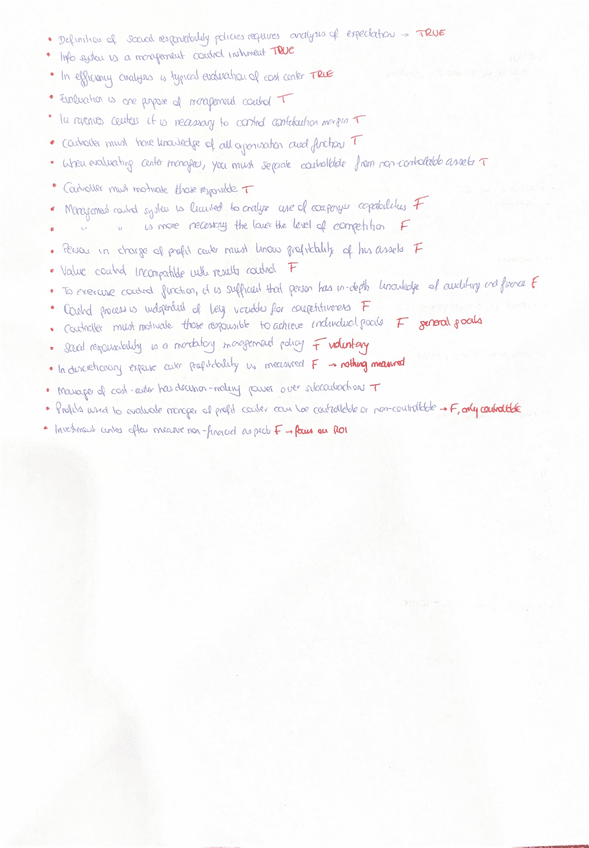 • Definition of social responsability policies requires analysis of expectation → TRUE
• Info system is a management control instrument TRUE
• In efficiency analysis is typical evaluation of cost center TRUE
• Evaluation is one purpose of management control T
• In revenues centers it is necessary to control contribution margin T
• Controller must have knowledge of all organisation and function T
• When evaluating center managers, you must separate controllable from non-controllable assets T
• Controller must motivate those responsible T
• Management control system is limited to analyse use of companys capabilities F
• " " is more necessary the lower the level of competition F
• Person in charge of profit center must know profitability of his assets F
• Value control incompatible with results control F
• To exercise control function, it is sufficient that person has in-depth knowledge of auditing and finance F
• Control process is independent of key variables for competitiveness F
• Controller must motivate those responsible to achieve individual goals F general goals
• Social responsibility is a mandatory management policy F voluntary
• In discretionary expense center profitability is measured F → nothing measured
• Manager of cost-center has decision-making power over T
• Profits used to evaluate manager of profit center can be controllable or non-controllable → F, only controllable
• Investment centers often measure non-financial aspects F → focus on ROI